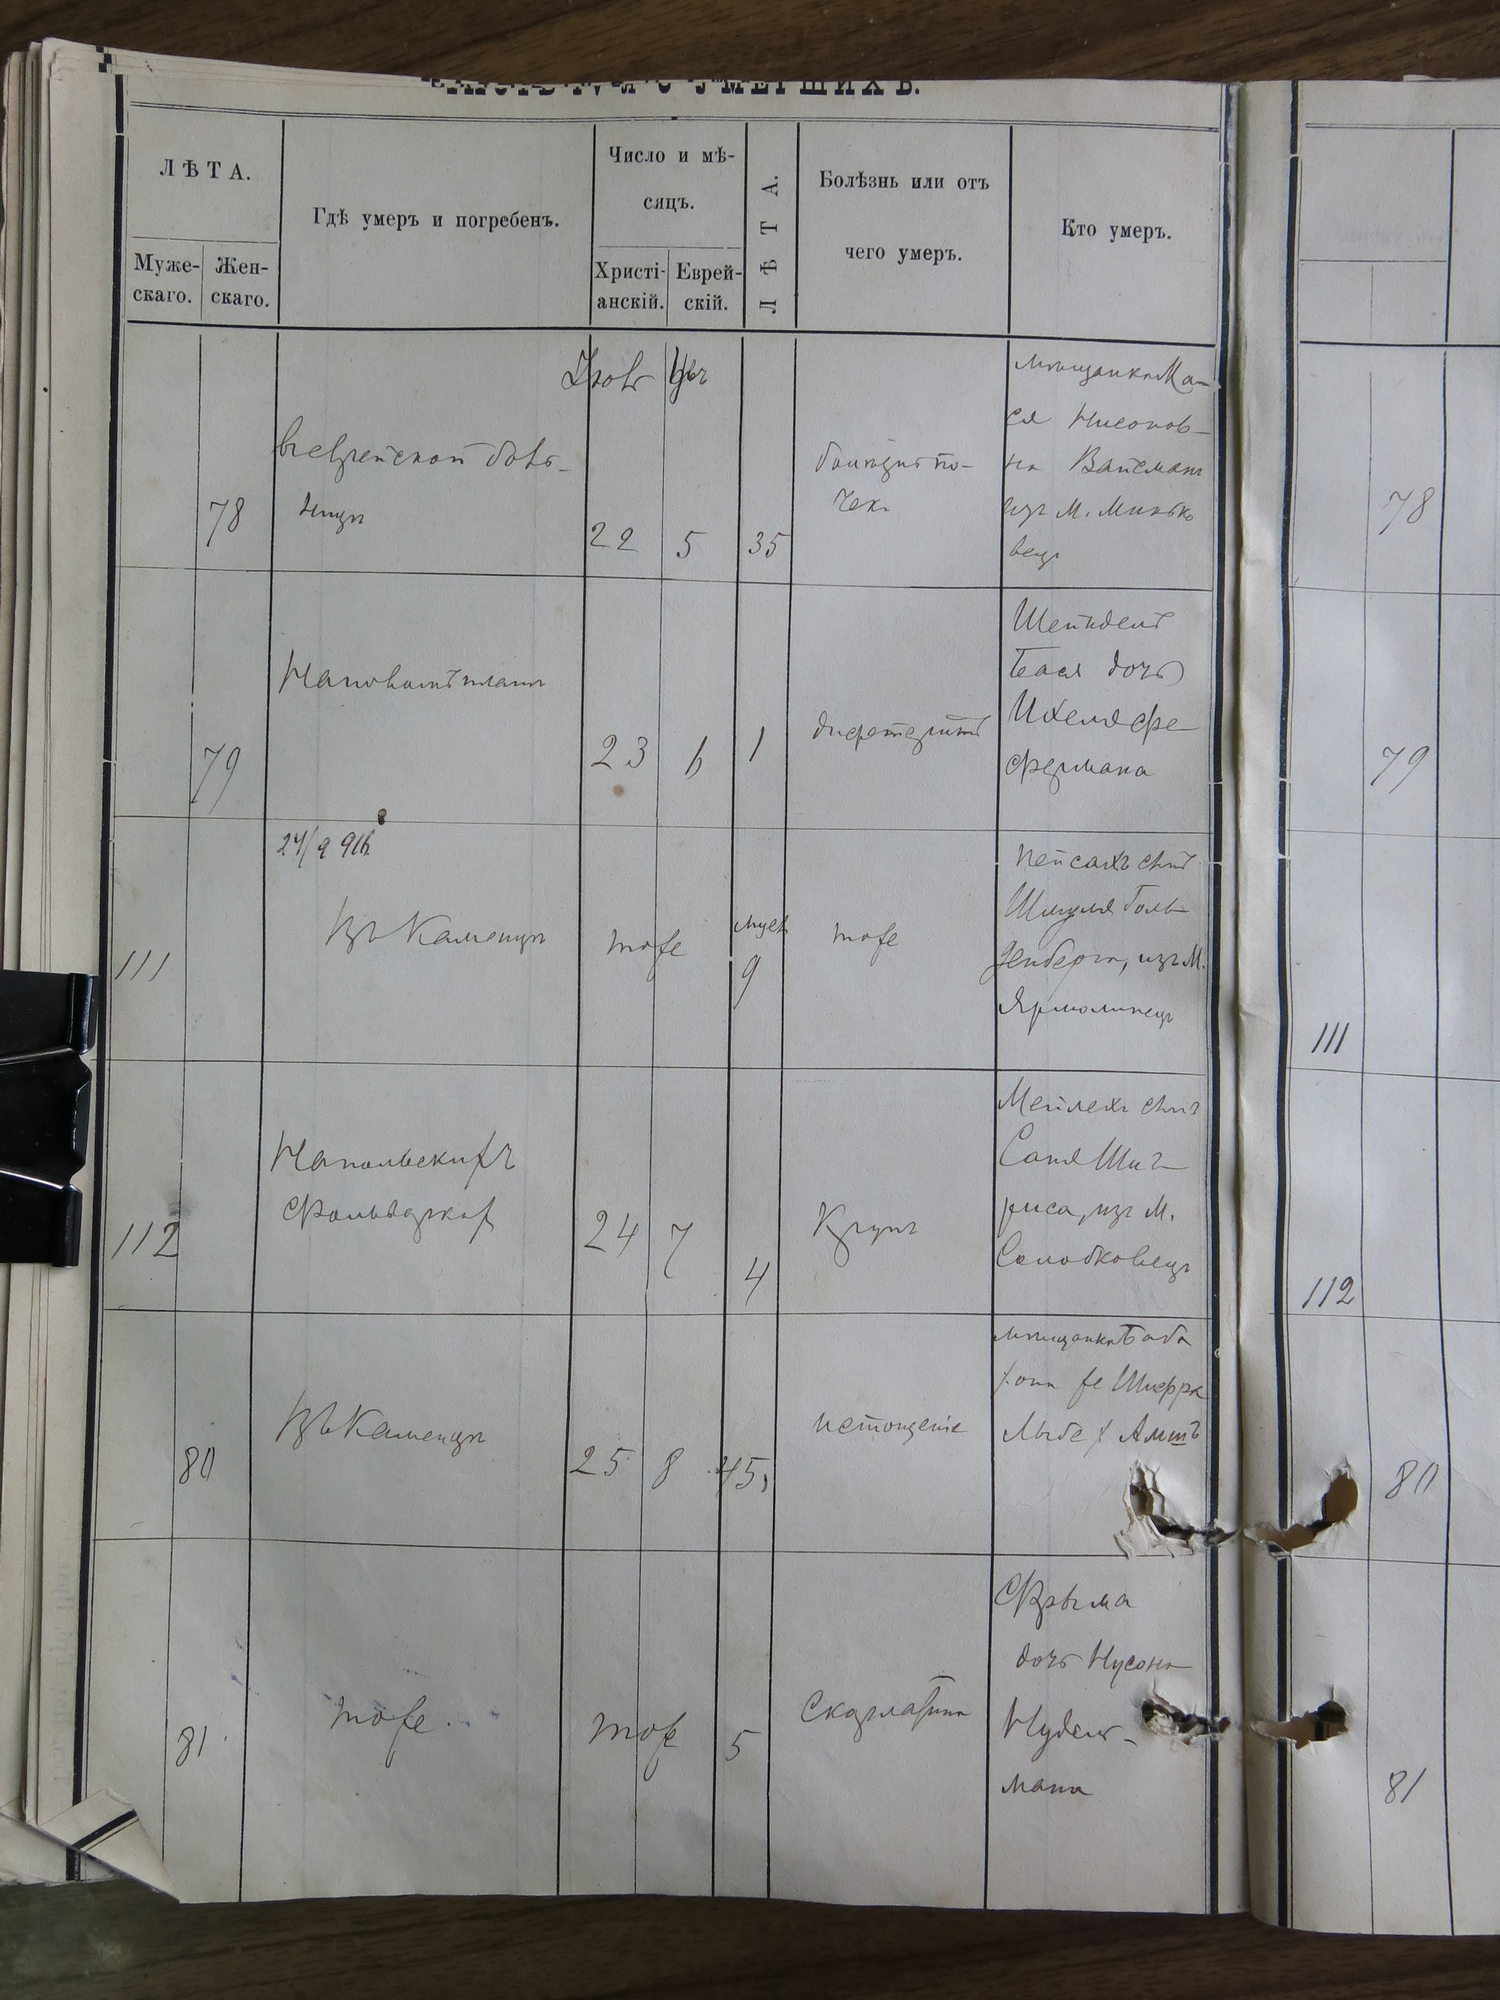 ЧАСТЬ IV-я О УМЕРШИХЪ.
ЛѢТА.
Муже-
скаго.
Жен-
скаго.
Гдѣ умеръ и погребенъ.
Число и мѣ-
сяцъ.
Христі-
анскій.
Еврей-
скій.
ЛѢТА.
Болѣзнь или отъ
чего умеръ.
Кто умеръ.
78
въ еврейской боль-
ницѣ
22
5
35
болѣзнь по-
чек
мѣщанка Ма-
ся Нисонов-
на Вайсманъ
изъ м. Минько
вецъ
78
79
23
6
1
дифтеритъ
Шейндель
Бася дочь
фермана
79
24/9 916
111
Въ Каменцѣ
тоже
мѣс
9
тоже
Пейсахъ сынъ
Шмуля Голь
денберга, изъ М.
Ярмолинецъ
111
112
На польскихъ
фольваркахъ
24
7
4
Крупъ
Мейлехъ сынъ
риса, изъ М.
Солобковецъ
112
80
Въ Каменцѣ
25
8
45
истощеніе
мѣщанка Баба
Хона же Шифра
80
81
тоже.
тоже
5
Скарлатина
Фрыма
дочь Нусона
Нудель-
мана
81